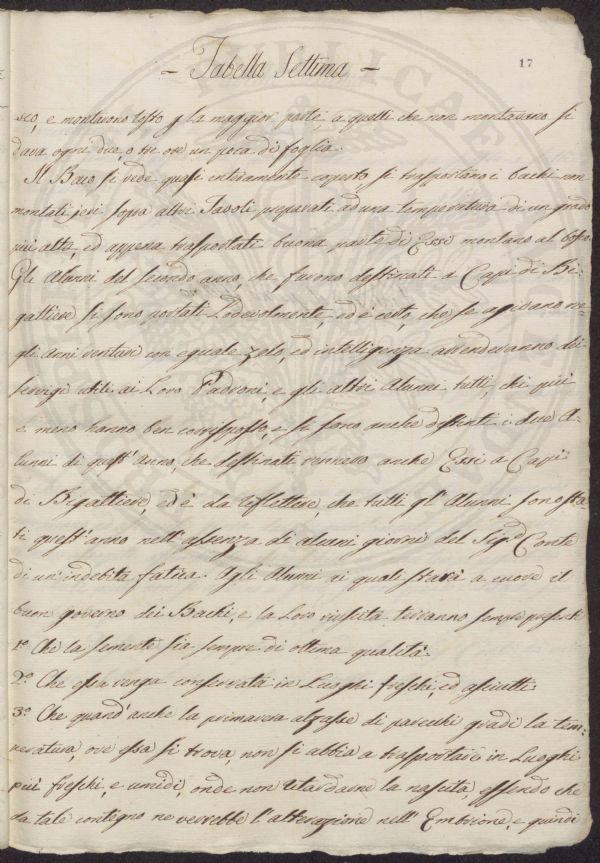 17
- Tabella Settima -
sco, e montarono tosto p la maggior parte, a quelli che non montavano si
dava ogni due, o tre ore un poca di foglia.
Il Baco si vede quasi interamente coperto, si trasportano i bachi non
montati jeri sopra altri Tavoli preparati ad una temperatura di un grado
più alta, ed appena trasportati buona parte di Essi montano al bosco.
Gli Alunni del secondo anno, che furono destinati a Capi di Bi-
gattiere si sono portati Lodevolmente, ed è certo, che se agiranno ne-
gli anni venturi con eguale zelo, ed intelligenza renderanno dei
servigi utili ai Loro Padroni, e gli altri Alunni tutti, chi più
e meno hanno ben corrisposto, e si sono anche distinti i due A-
lunni di quest'anno, che destinati vennero anche Essi a Capi
di Bigattiere, ed è da riflettere, che tutti gl'Alunni son sta-
ti quest'anno nell'assenza di alcuni giorni del Sig.r Conte
di un'indebita fatica. Agli Alunni ai quali starà a cuore il
buon governo dei Bachi, e la Loro riuscita terranno sempre presente
1.o Che la semente sia sempre di ottima qualità.
2.o Che essa venga conservata in Luoghi freschi, ed asciutti.
3.o Che quand'anche la primavera alzasse di parecchi gradi la tem-
peratura, ove essa si trova, non si abbia a trasportare in Luoghi
più freschi, e umidi, onde non ritardarne la nascita, essendo che
da tale contegno ne verrebbe l'alterazione nell'Embrione, e quindi